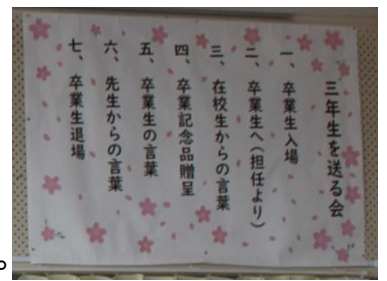 三年生を送る会
一、卒業生入場
二、卒業生へ（担任より）
三、在校生からの言葉
四、卒業記念品贈呈
五、卒業生の言葉
六、先生からの言葉
七、卒業生退場